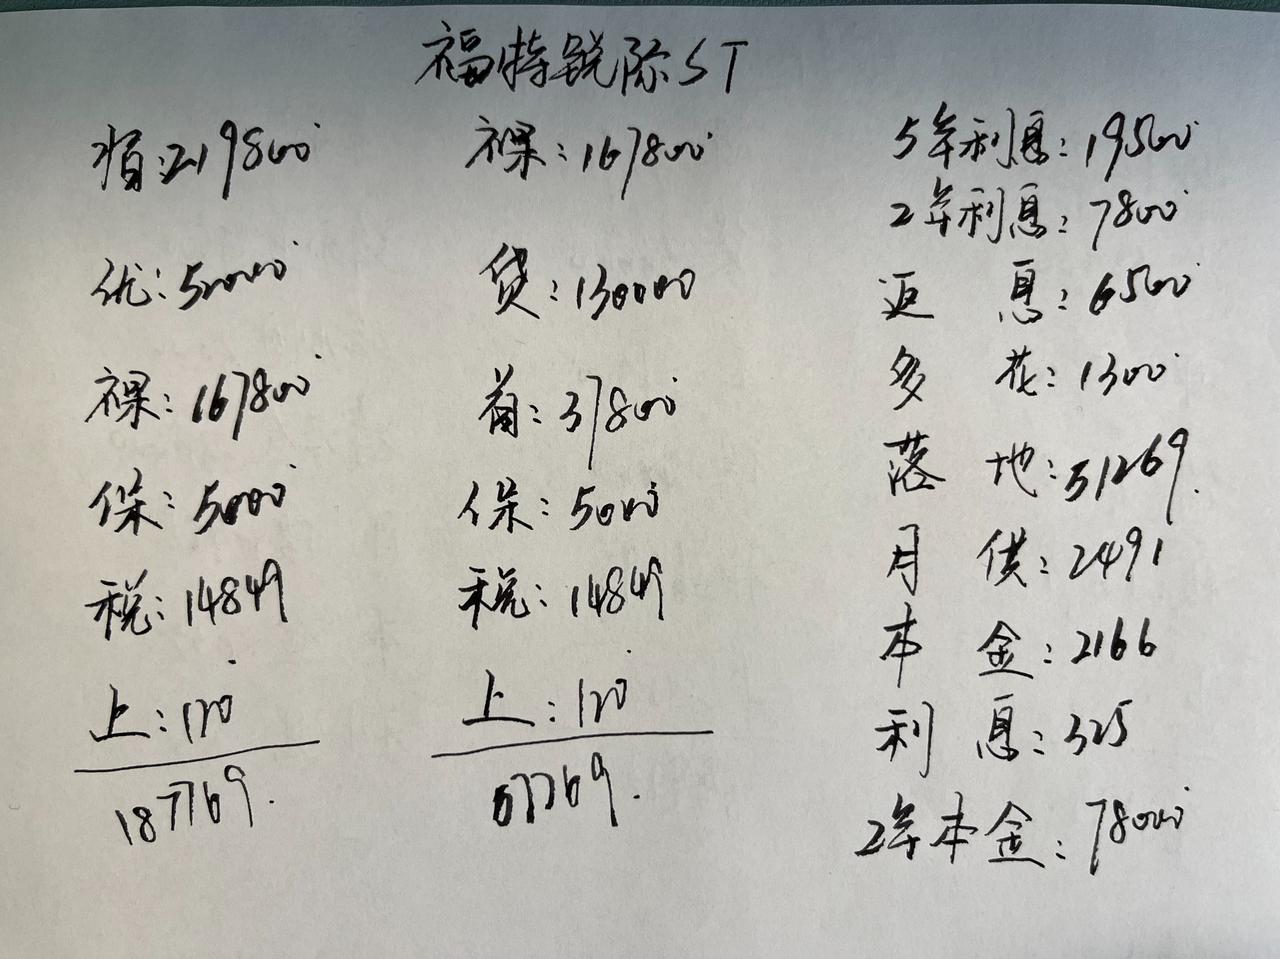 福特锐际ST
指:219800
优:52000
裸:167800
保:5000
税:14849
上:120
187769.
裸:167800
贷:130000
首:37800
保:5000
税:14849
上:120
57769.
5年利息:19500
2年利息:7800
返息:6500
多花:1300
落地:51269.
月供:2491
本金:2166
利息:325
2年本金:78000